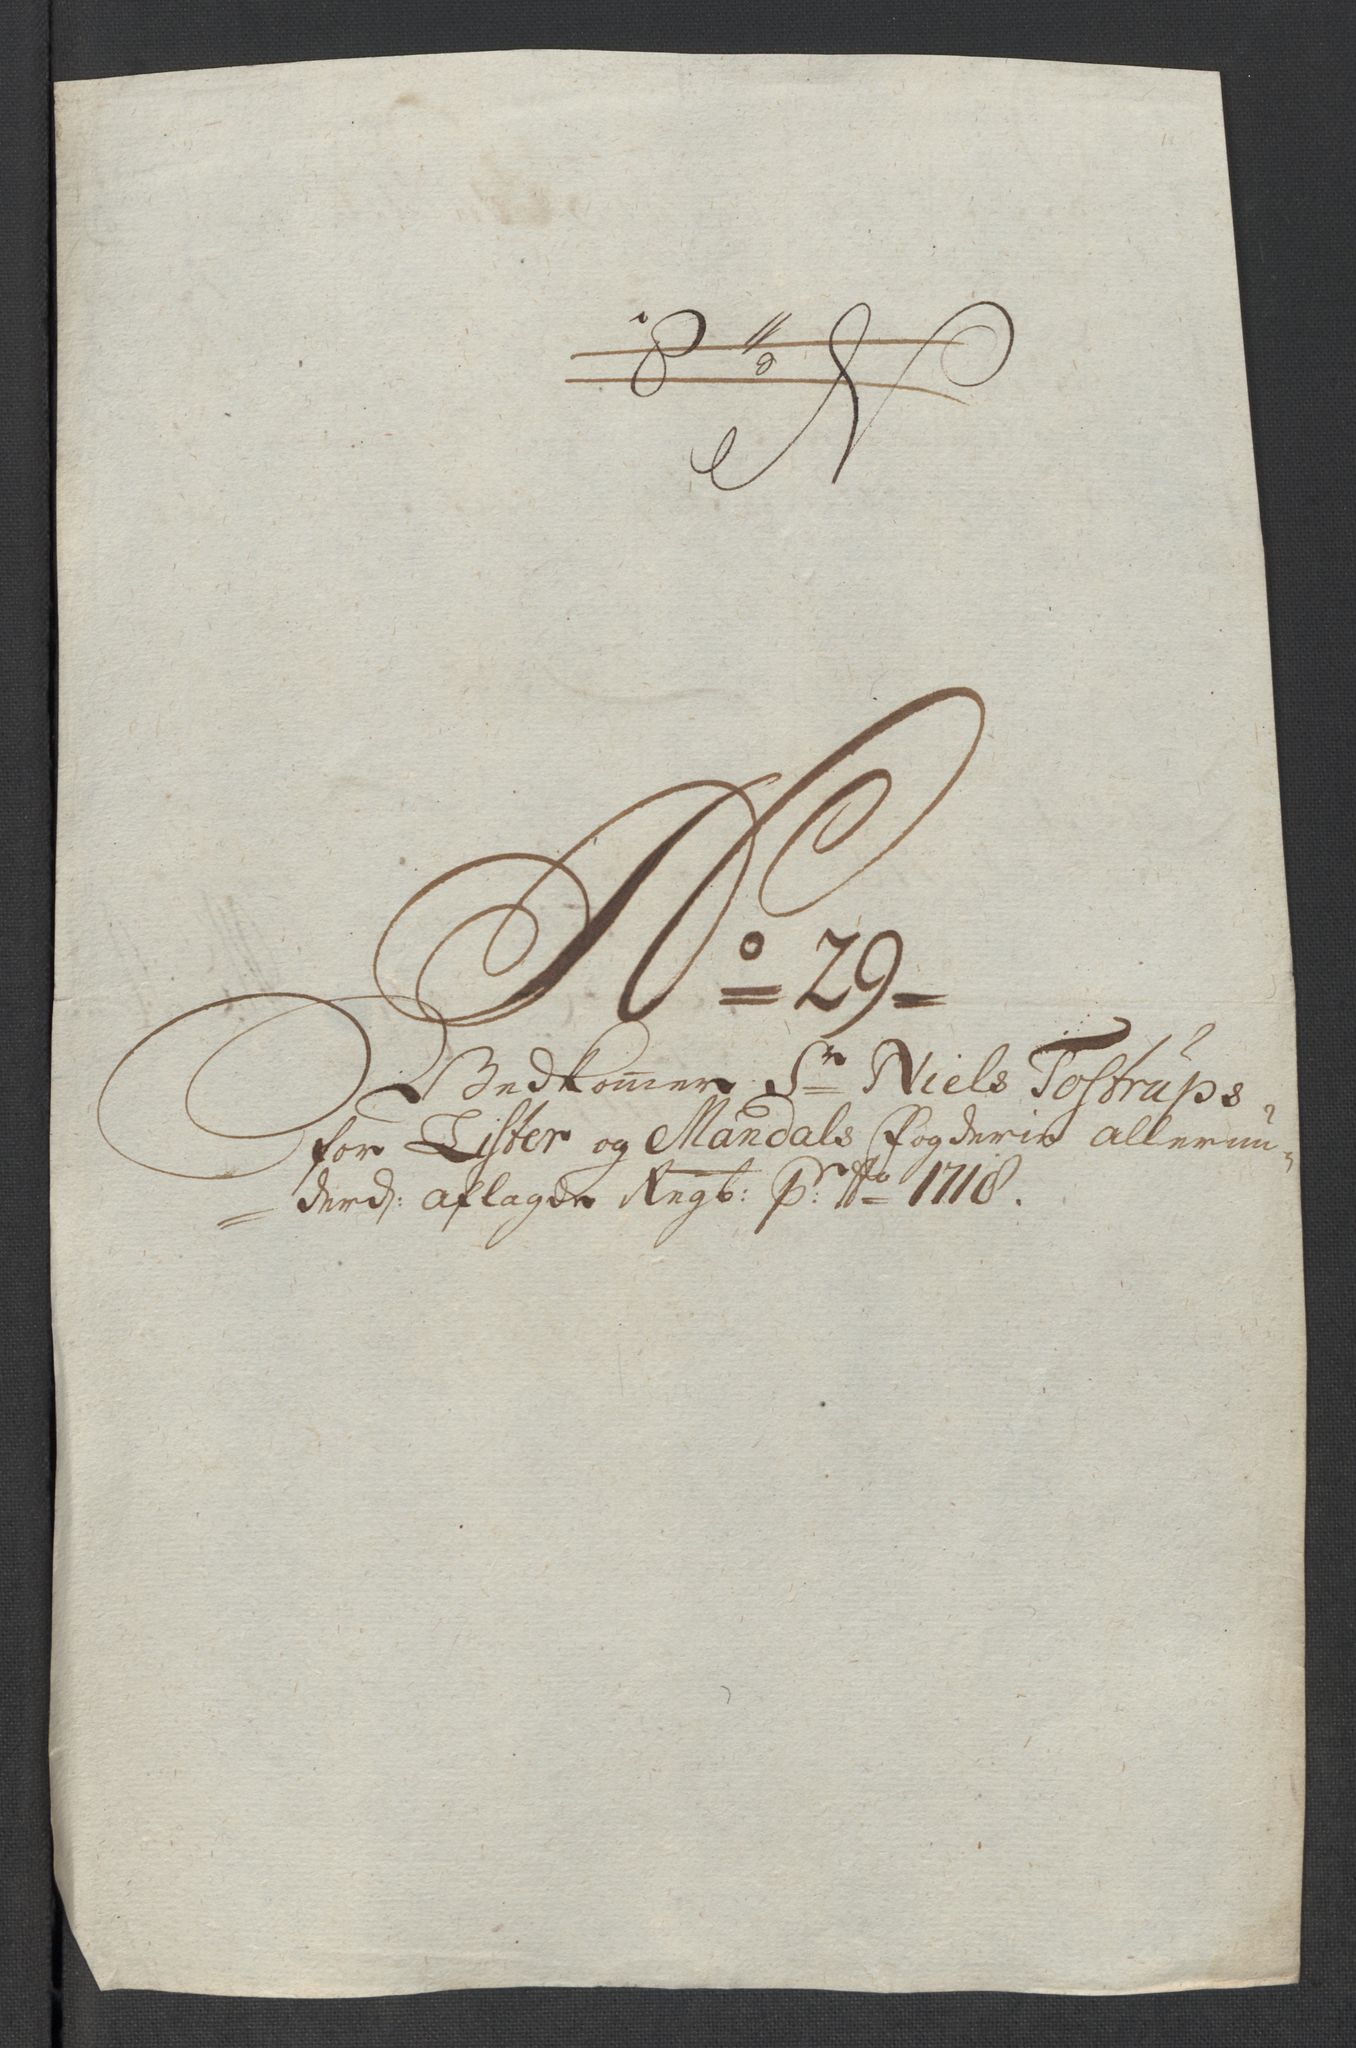 No 29
Vedkommer Sr Niels Tostrüps
for Lister og Mandals Fogderie allerun-
derd: aflagde Regb: pr: Ao 1718.